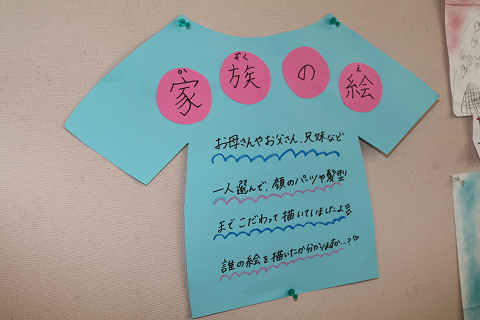 家族の絵
か ぞく え
お母さんやお父さん、兄妹など
一人選んで、顔のパーツや髪型
までこだわって描いていましたよ!!
誰の絵を描いたか分かりますか…?♡